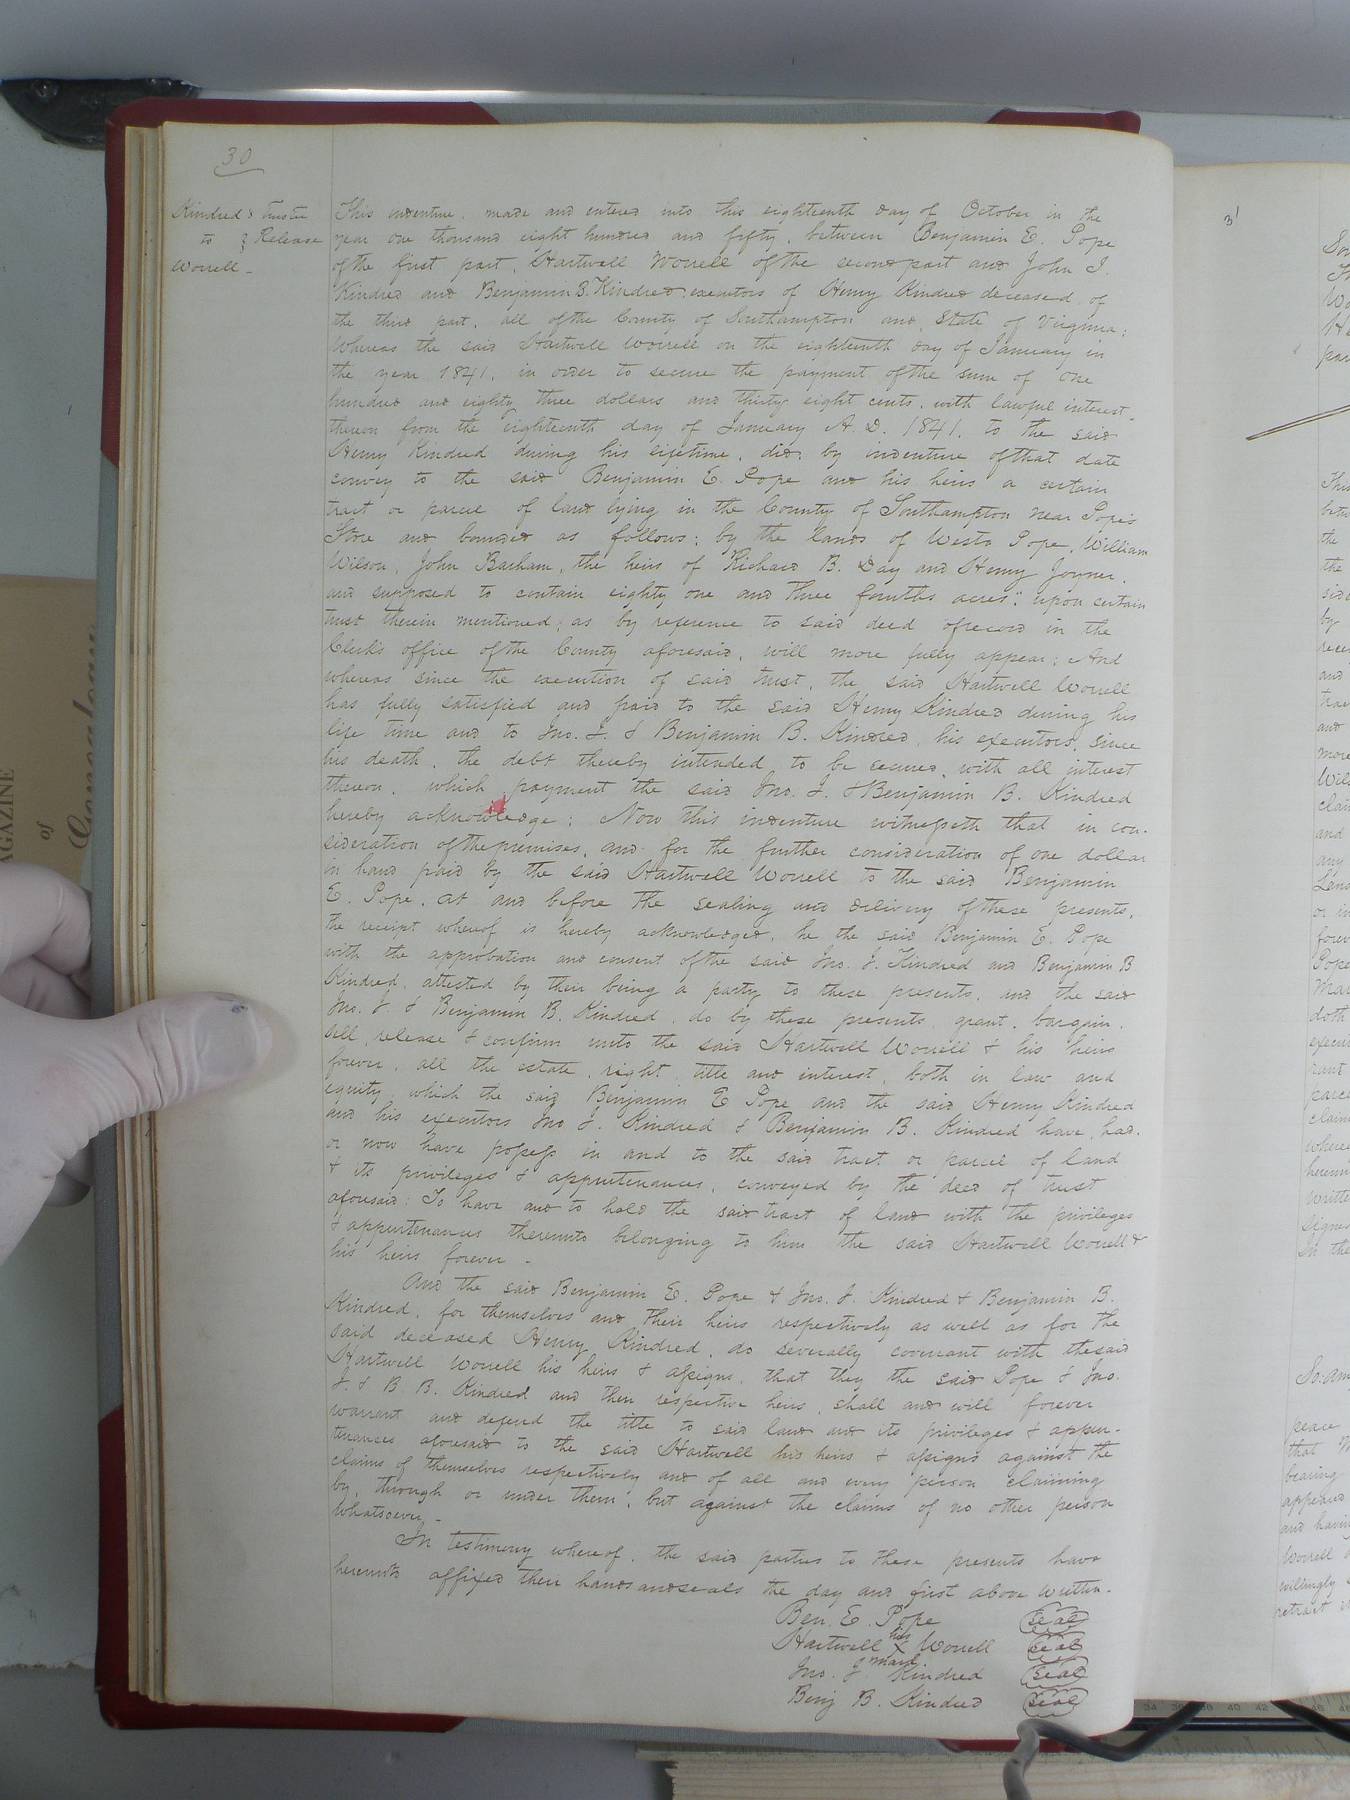 30
Kindred & Trustee
to } Release
Worrell -
This indenture, made and entered into this eighteenth day of October in the
year one thousand eight hundred and fifty, between Benjamin E. Pope
of the first part, Hartwell Worrell of the second part and John J.
Kindred and Benjamin B. Kindred executors of Henry Kindred deceased, of
the third part, all of the County of Southampton and State of Virginia;
Whereas the said Hartwell Worrell on the eighteenth day of January in
the year 1841, in order to secure the payment of the sum of one
hundred and eighty three dollars and thirty eight cents, with lawful interest
thereon from the eighteenth day of January A. D. 1841, to the said
Henry Kindred during his lifetime, did, by indenture of that date
convey to the said Benjamin E. Pope and his heirs a certain
tract or parcel of land lying in the County of Southampton near Pope's
Store and bounded as follows; by the lands of Westn Pope, William
Wilson, John Barham, the heirs of Richard B. Day and Henry Joyner,
and supposed to contain eighty one and three fourths acres", upon certain
trust therein mentioned, as by reference to said deed of record in the
Clerk's office of the County aforesaid, will more fully appear; And
whereas since the execution of said trust, the said Hartwell Worrell
has fully satisfied and paid to the said Henry Kindred during his
life time and to Jno. J. & Benjamin B. Kindred, his executors, since
his death, the debt thereby intended to be secured, with all interest
thereon, which payment the said Jno. J. & Benjamin B. Kindred
hereby acknowledge; Now this indenture witnesseth that in con-
sideration of the premises, and for the further consideration of one dollar
in hand paid by the said Hartwell Worrell to the said Benjamin
E. Pope, at and before the sealing and delivery of these presents,
the receipt whereof is hereby acknowledged, he the said Benjamin E. Pope
with the approbation and consent of the said Jno. J. Kindred and Benjamin B
Kindred, attested by their being a party to these presents, and the said
Jno. J. & Benjamin B. Kindred, do by these presents, grant, bargain,
sell, release & confirm unto the said Hartwell Worrell & his heirs
forever, all the estate, right, title and interest, both in law and
equity, which the said Benjamin E Pope and the said Henry Kindred
and his executors Jno J. Kindred & Benjamin B. Kindred have, had,
or now have possess in and to the said tract or parcel of land
& its privileges & appurtenances, conveyed by the deed of trust
aforesaid: To have and to hold the said tract of land with the privileges
& appurtenances thereunto belonging to him the said Hartwell Worrell &
his heirs forever -
And the said Benjamin E. Pope & Jno. J. Kindred & Benjamin B.
Kindred, for themselves and their heirs respectively as well as for the
said deceased Henry Kindred, do severally covenant with the said
Hartwell Worrell his heirs & assigns, that they the said Pope & Jno.
J. & B. B. Kindred and their respective heirs, shall and will forever
warrant and defend the title to said land and its privileges & appur-
tenances aforesaid to the said Hartwell his heirs & assigns against the
claims of themselves respectively and of all and every person claiming
by, through or under them, but against the claims of no other person
whatsoever. -
In testimony whereof, the said parties to these presents have
hereunto affixed their hands and seals the day and first above written.
Ben. E. Pope Seal
Hartwell his X mark Worrell Seal
Jno. J Kindred Seal
Benj B. Kindred Seal
31
AGAZINE
of